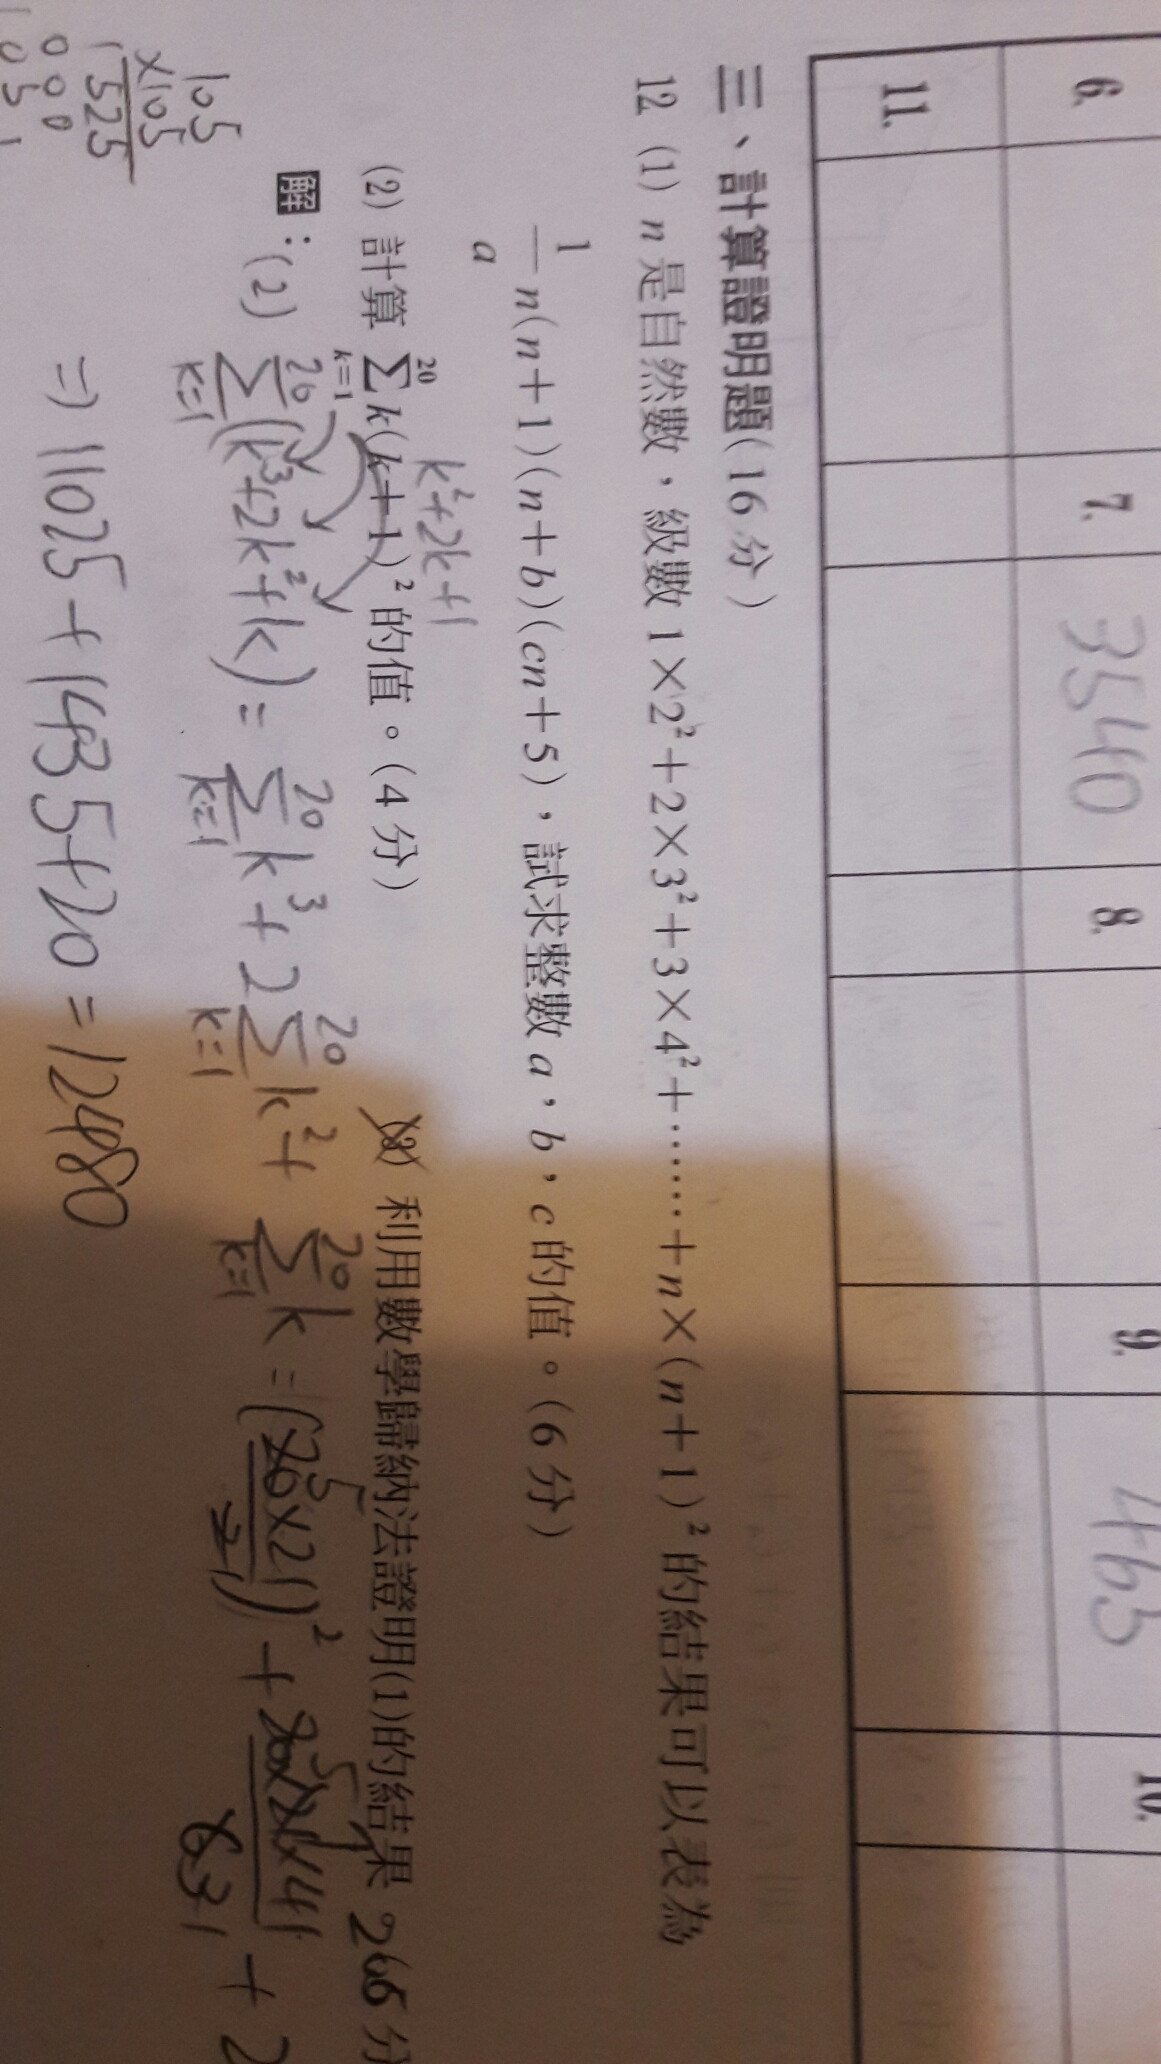 6. 7. 3540 8. 9. 463 10.
11.
三、計算證明題(16分)
12 (1) n 是自然數，級數 1×2²+2×3²+3×4²+……+n×(n+1)² 的結果可以表為
1/a n(n+1)(n+b)(cn+5)，試求整數 a，b，c 的值。(6分)
k²+2k+1
(2) 計算 ∑_{k=1}^{20} k(k+1)² 的值。(4分) (3) 利用數學歸納法證明(1)的結果
解：(2) ∑_{k=1}^{20} (k³+2k²+k) = ∑_{k=1}^{20} k³ + 2 ∑_{k=1}^{20} k² + ∑_{k=1}^{20} k = (20×21/2)² + 20×21×41/6 + 2
⇒ 11025 + 1435 + 20 = 12480
105
×105
525
000